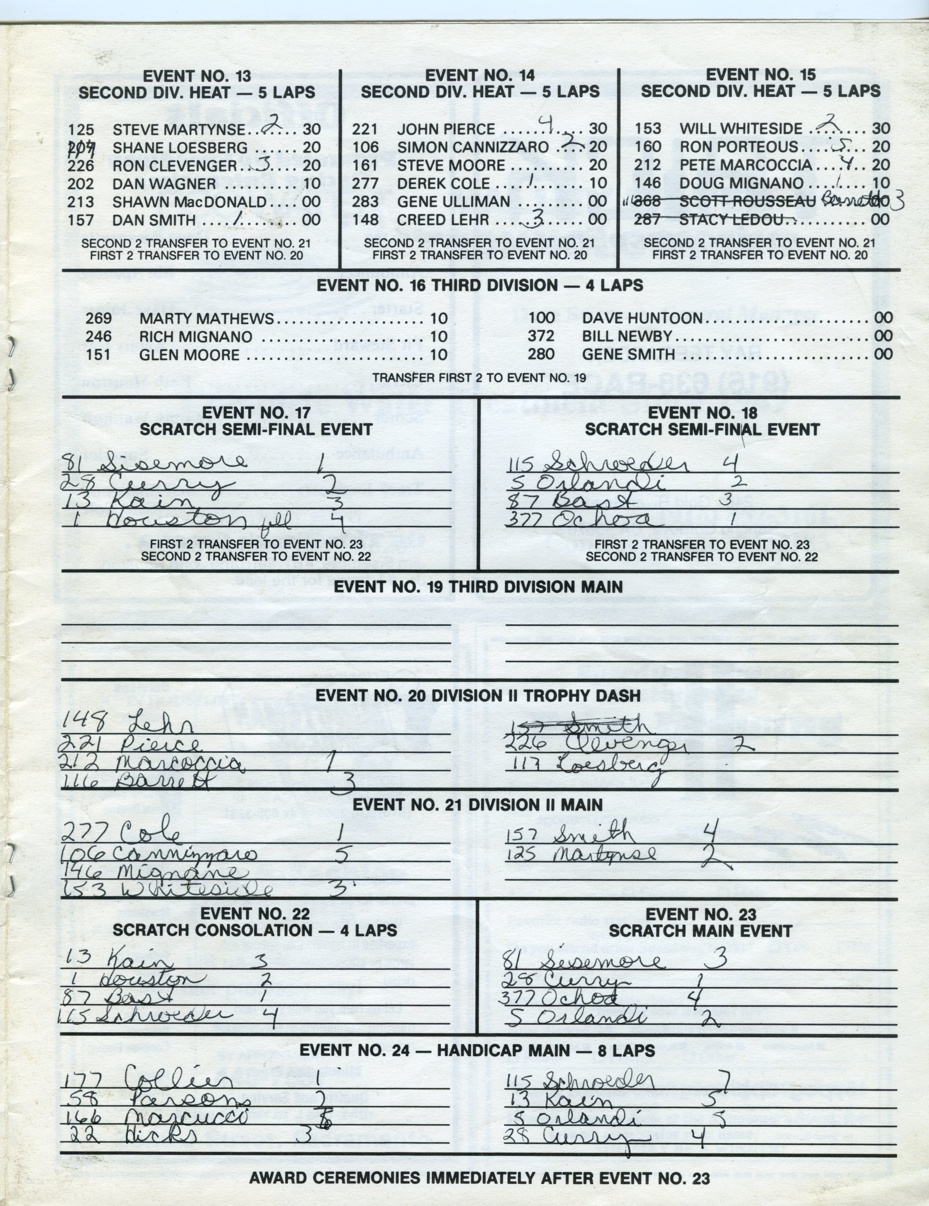 EVENT NO. 13
SECOND DIV. HEAT — 5 LAPS
125 STEVE MARTYNSE..2..... 30
117 SHANE LOESBERG ....... 20
226 RON CLEVENGER......... 20
202 DAN WAGNER ............ 10
213 SHAWN MacDONALD.... 00
157 DAN SMITH ...1......... 00
SECOND 2 TRANSFER TO EVENT NO. 21
FIRST 2 TRANSFER TO EVENT NO. 20
EVENT NO. 14
SECOND DIV. HEAT — 5 LAPS
221 JOHN PIERCE .....4..... 30
106 SIMON CANNIZZARO ..2.. 20
161 STEVE MOORE .......... 20
277 DEREK COLE ...1....... 10
283 GENE ULLIMAN ......... 00
148 CREED LEHR ...3....... 00
SECOND 2 TRANSFER TO EVENT NO. 21
FIRST 2 TRANSFER TO EVENT NO. 20
EVENT NO. 15
SECOND DIV. HEAT — 5 LAPS
153 WILL WHITESIDE ..2..... 30
160 RON PORTEOUS ..5..... 20
212 PETE MARCOCCIA ..4... 20
146 DOUG MIGNANO ...1... 10
368 SCOTT ROUSSEAU Barrett 00 3
287 STACY LEDOU........... 00
SECOND 2 TRANSFER TO EVENT NO. 21
FIRST 2 TRANSFER TO EVENT NO. 20
EVENT NO. 16 THIRD DIVISION — 4 LAPS
269 MARTY MATHEWS...................... 10
246 RICH MIGNANO ......................... 10
151 GLEN MOORE ........................... 10
100 DAVE HUNTOON........................ 00
372 BILL NEWBY............................. 00
280 GENE SMITH ............................ 00
TRANSFER FIRST 2 TO EVENT NO. 19
EVENT NO. 17
SCRATCH SEMI-FINAL EVENT
81 Sisemore 1
28 Curry 2
13 Kain 3
1 Houston fell 4
FIRST 2 TRANSFER TO EVENT NO. 23
SECOND 2 TRANSFER TO EVENT NO. 22
EVENT NO. 18
SCRATCH SEMI-FINAL EVENT
115 Schroeder 4
5 Orlandi 2
87 Bast 3
377 Ochoa 1
FIRST 2 TRANSFER TO EVENT NO. 23
SECOND 2 TRANSFER TO EVENT NO. 22
EVENT NO. 19 THIRD DIVISION MAIN
EVENT NO. 20 DIVISION II TROPHY DASH
148 Lehr
221 Pierce
212 Marcoccia 1
116 Barrett 3
157 Smith
226 Clevenger 2
117 Loesberg
EVENT NO. 21 DIVISION II MAIN
277 Cole 1
106 Cannizzaro 5
146 Mignano
153 Whiteside 3
157 Smith 4
125 Martynse 2
EVENT NO. 22
SCRATCH CONSOLATION — 4 LAPS
13 Kain 3
1 Houston 2
87 Bast 1
115 Schroeder 4
EVENT NO. 23
SCRATCH MAIN EVENT
81 Sisemore 3
28 Curry 1
377 Ochoa 4
5 Orlandi 2
EVENT NO. 24 — HANDICAP MAIN — 8 LAPS
177 Collier 1
58 Parsons 2
166 Marcucci
22 Hicks 3
115 Schroeder 7
13 Kain 5
5 Orlandi 5
28 Curry 4
AWARD CEREMONIES IMMEDIATELY AFTER EVENT NO. 23